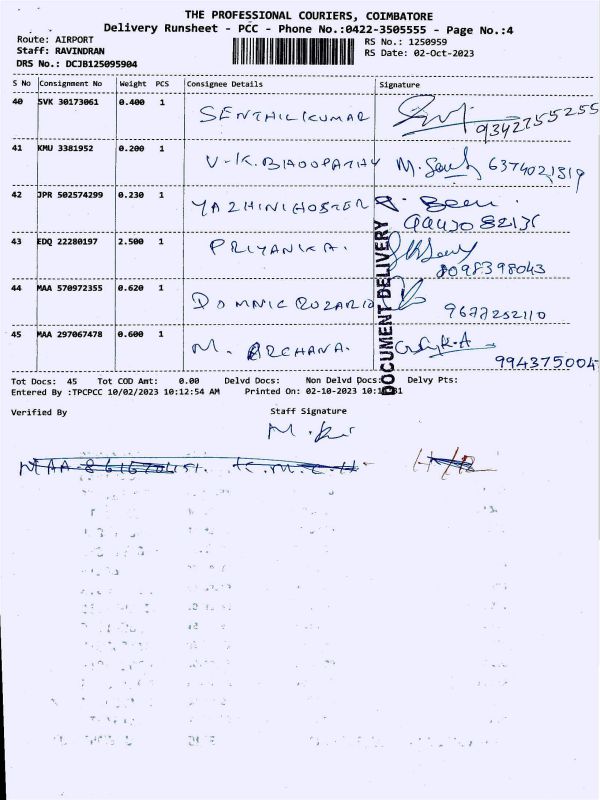 THE PROFESSIONAL COURIERS, COIMBATORE
Delivery Runsheet - PCC - Phone No.:0422-3505555 - Page No.:4
Route: AIRPORT
Staff: RAVINDRAN
DRS No.: DCJB125095904
RS No.: 1250959
RS Date: 02-Oct-2023
S No Consignment No Weight PCS Consignee Details Signature
40 SVK 30173061 0.400 1 SENTHILKUMAR 9342755255
41 KMU 3381952 0.200 1 V.K.BHOOPATHY 6374021319
42 JPR 502574299 0.230 1 YAZHINI HOSTER
43 EDQ 22280197 2.500 1 PRIYANKA. 8098398043
44 MAA 570972355 0.620 1 DOMNIC ROZARIO 9677252110
45 MAA 297067478 0.600 1 M. ARCHANA. 994375004
DOCUMENT DELIVERY
Tot Docs: 45 Tot COD Amt: 0.00 Delvd Docs: Non Delvd Docs: Delvy Pts:
Entered By :TPCPCC 10/02/2023 10:12:54 AM Printed On: 02-10-2023
Verified By Staff Signature